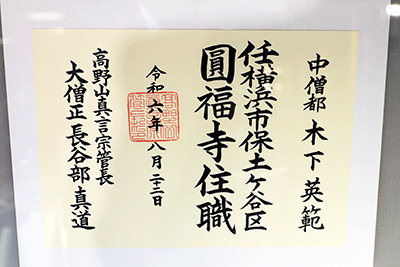 中僧都 木下英範
任横浜市保土ケ谷区
圓福寺住職
令和六年八月二十二日
高野山真言宗管長
大僧正長谷部真道